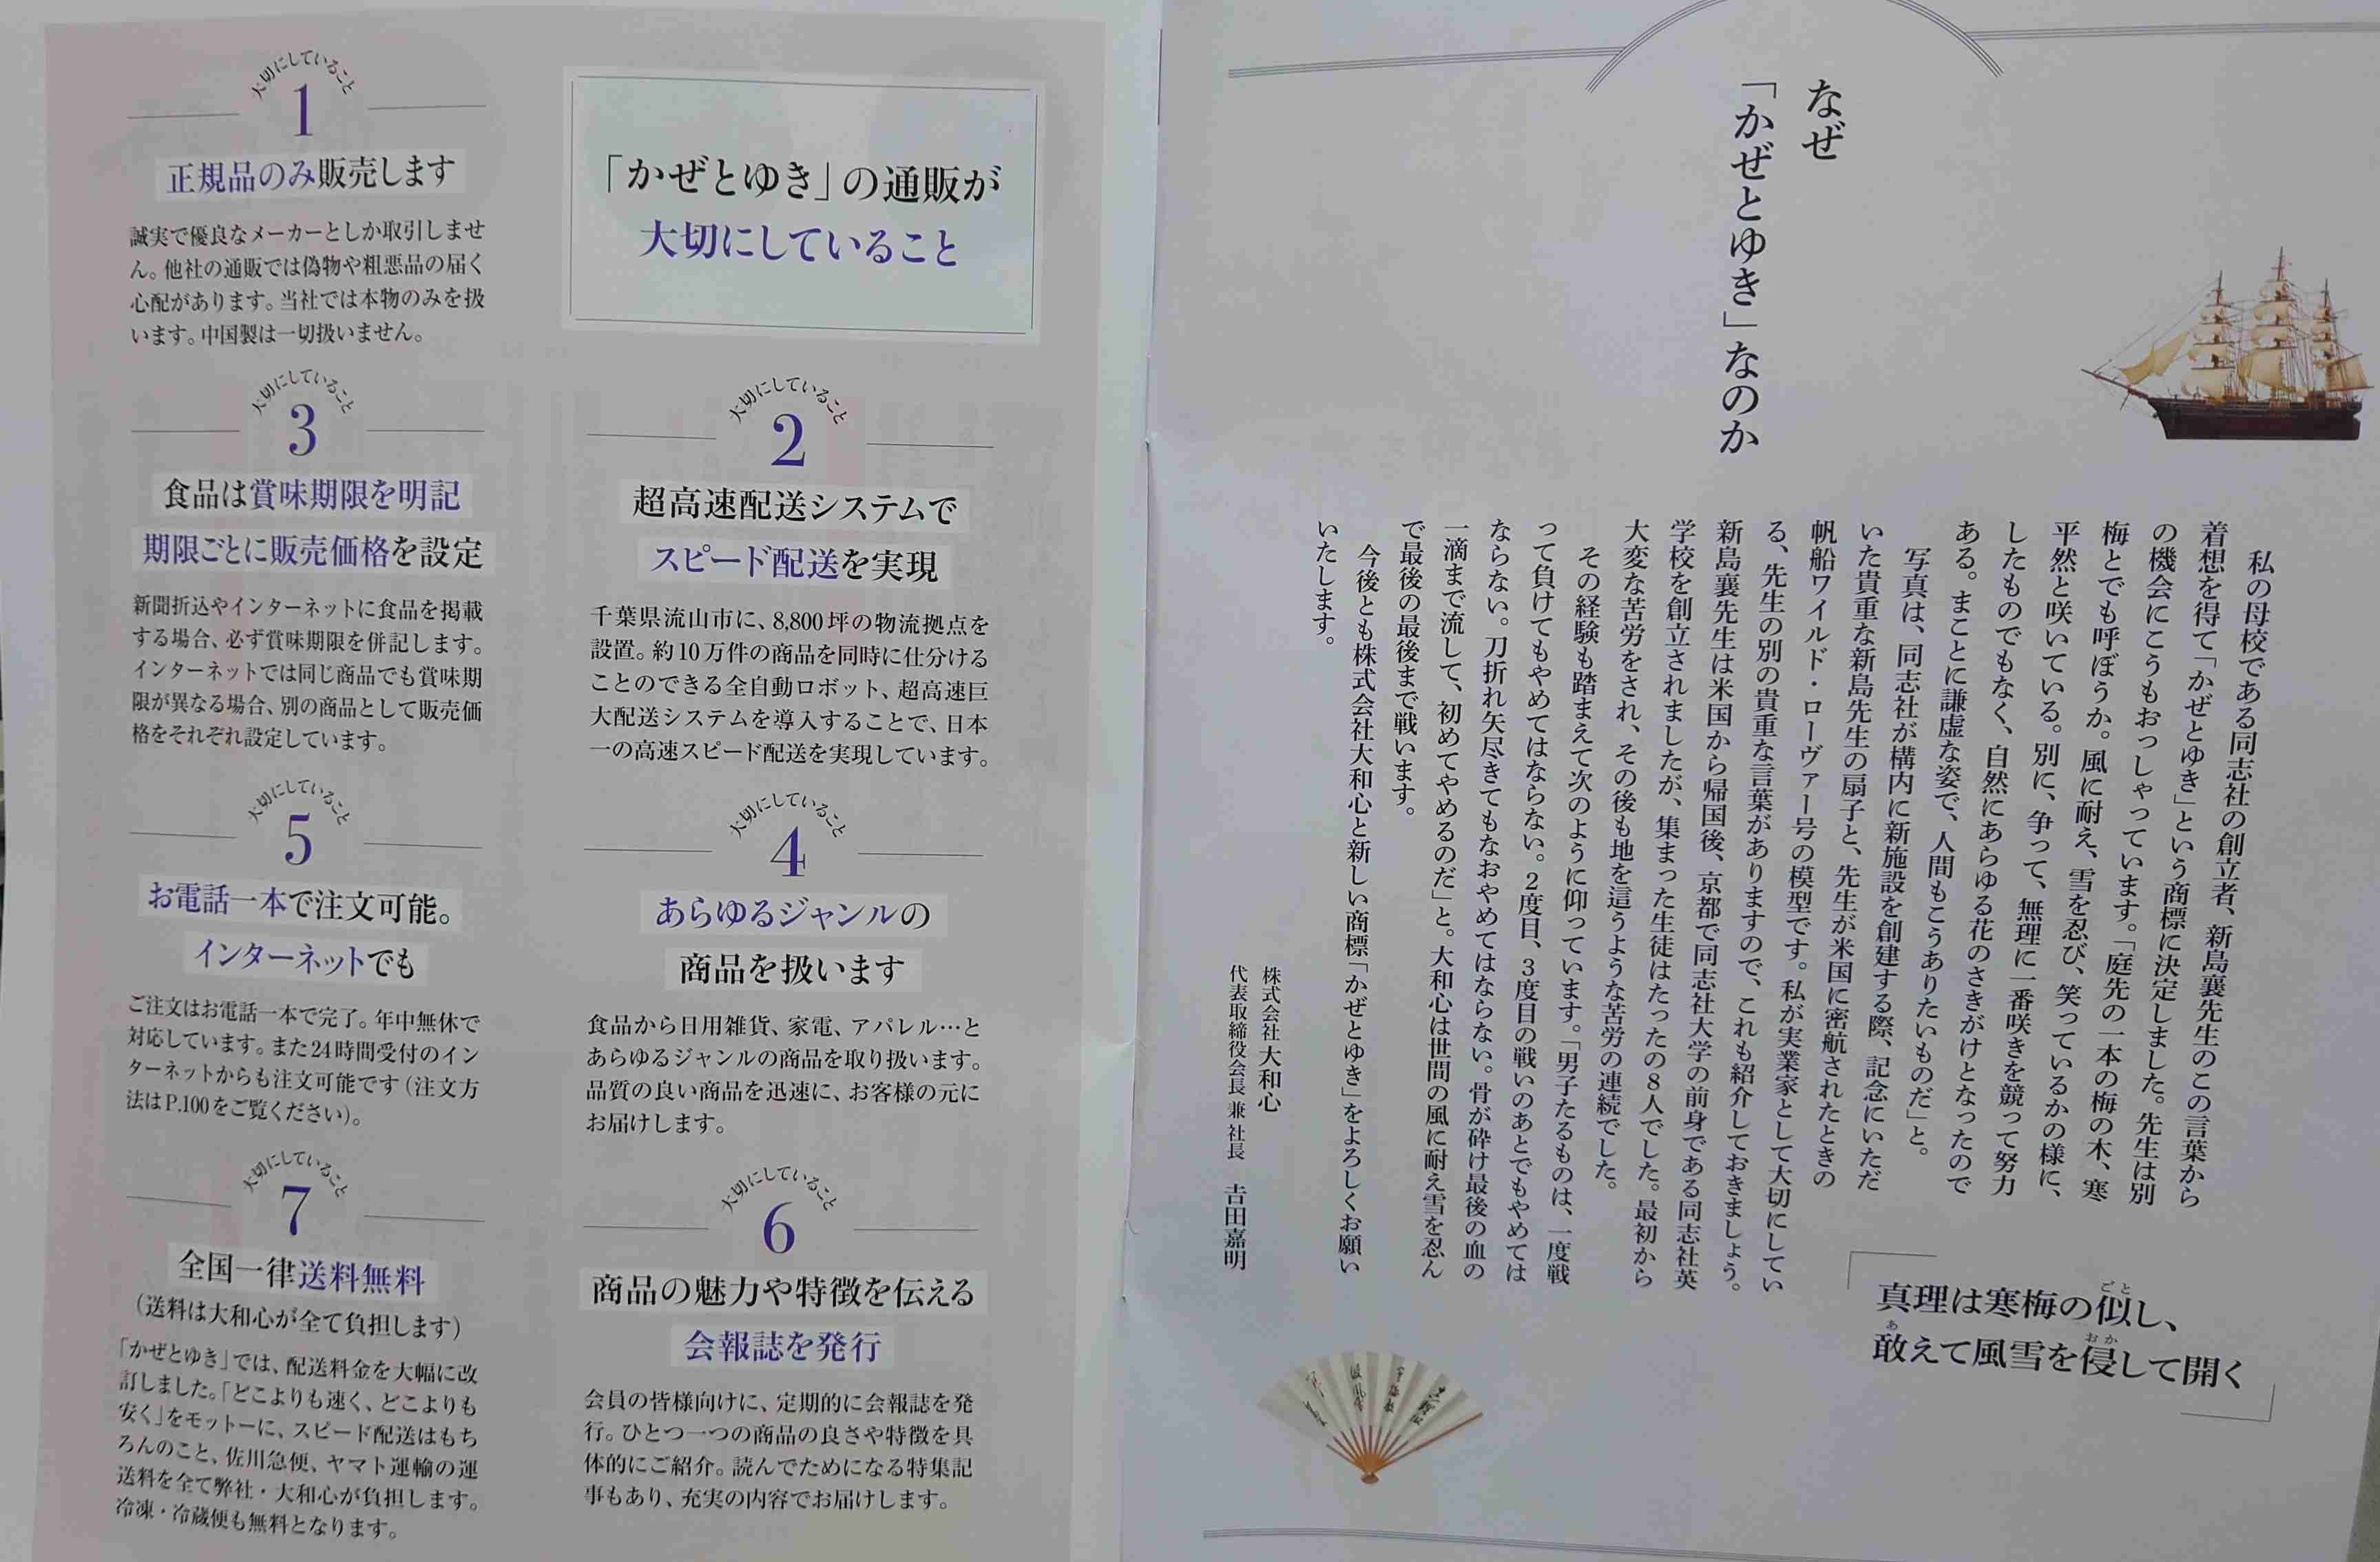 なぜ
「かぜとゆき」なのか
私の母校である同志社の創立者、新島襄先生のこの言葉から
着想を得て「かぜとゆき」という商標に決定しました。先生は別
の機会にこうもおっしゃっています。「庭先の一本の梅の木、寒
梅とでも呼ぼうか。風に耐え、雪を忍び、笑っているかの様に、
平然と咲いている。別に、争って、無理に一番咲きを競って努力
したものでもなく、自然にあらゆる花のさきがけとなったので
ある。まことに謙虚な姿で、人間もこうありたいものだ」と。
写真は、同志社が構内に新施設を創建する際、記念にいただ
いた貴重な新島先生の扇子と、先生が米国に密航されたときの
帆船ワイルド・ローヴァー号の模型です。私が実業家として大切にしてい
る、先生の別の貴重な言葉がありますので、これも紹介しておきましょう。
新島襄先生は米国から帰国後、京都で同志社大学の前身である同志社英
学校を創立されましたが、集まった生徒はたったの8人でした。最初から
大変な苦労をされ、その後も地を這うような苦労の連続でした。
その経験も踏まえて次のように仰っています。「男子たるものは、一度戦
って負けてもやめてはならない。2度目、3度目の戦いのあとでもやめては
ならない。刀折れ矢尽きてもなおやめてはならない。骨が砕け最後の血の
一滴まで流して、初めてやめるのだ」と。大和心は世間の風に耐え雪を忍ん
で最後の最後まで戦います。
今後とも株式会社大和心と新しい商標「かぜとゆき」をよろしくお願い
いたします。
株式会社 大和心
代表取締役会長 兼 社長 吉田嘉明
真理は寒梅の似し、
敢えて風雪を侵して開く
「かぜとゆき」の通販が
大切にしていること
大切にしていること
1
正規品のみ販売します
誠実で優良なメーカーとしか取引しませ
ん。他社の通販では偽物や粗悪品の届く
心配があります。当社では本物のみを扱
います。中国製は一切扱いません。
大切にしていること
2
超高速配送システムで
スピード配送を実現
千葉県流山市に、8,800坪の物流拠点を
設置。約10万件の商品を同時に仕分ける
ことのできる全自動ロボット、超高速巨
大配送システムを導入することで、日本
一の高速スピード配送を実現しています。
大切にしていること
3
食品は賞味期限を明記
期限ごとに販売価格を設定
新聞折込やインターネットに食品を掲載
する場合、必ず賞味期限を併記します。
インターネットでは同じ商品でも賞味期
限が異なる場合、別の商品として販売価
格をそれぞれ設定しています。
大切にしていること
4
あらゆるジャンルの
商品を扱います
食品から日用雑貨、家電、アパレル…と
あらゆるジャンルの商品を取り扱います。
品質の良い商品を迅速に、お客様の元に
お届けします。
大切にしていること
5
お電話一本で注文可能。
インターネットでも
ご注文はお電話一本で完了。年中無休で
対応しています。また24時間受付のイン
ターネットからも注文可能です(注文方
法はP.100をご覧ください)。
大切にしていること
6
商品の魅力や特徴を伝える
会報誌を発行
会員の皆様向けに、定期的に会報誌を発
行。ひとつ一つの商品の良さや特徴を具
体的にご紹介。読んでためになる特集記
事もあり、充実の内容でお届けします。
大切にしていること
7
全国一律送料無料
(送料は大和心が全て負担します)
「かぜとゆき」では、配送料金を大幅に改
訂しました。「どこよりも速く、どこよりも
安く」をモットーに、スピード配送はもち
ろんのこと、佐川急便、ヤマト運輸の運
送料を全て弊社・大和心が負担します。
冷凍・冷蔵便も無料となります。